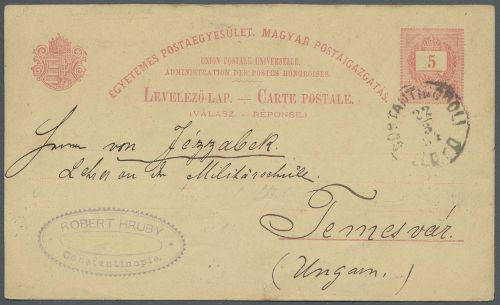 EGYETEMES POSTAEGYESÜLET. MAGYAR POSTAIGAZGATÁS.
UNION POSTALE UNIVERSELLE.
ADMINISTRATION DES POSTES HONGROISES.
LEVELEZŐ-LAP. — CARTE POSTALE.
(VÁLASZ. — RÉPONSE.)
5
Herrn von Jezzabek.
Lehrer an der Militärschule.
Temesvár.
(Ungarn.)
ROBERT HRUBY
Constantinople.